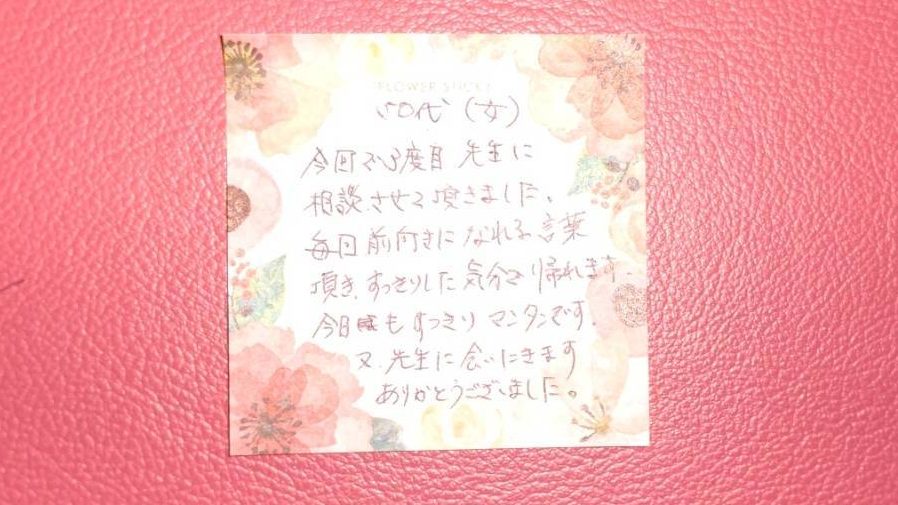 FLOWER STICKY
50代(女)
今回で3度目 先生に
相談させて頂きました、
毎回前向きになれる言葉
頂き、すっきりした気分で帰れます.
今日もすっきり マンタンです.
又、先生に会いにきます
ありがとうございました。